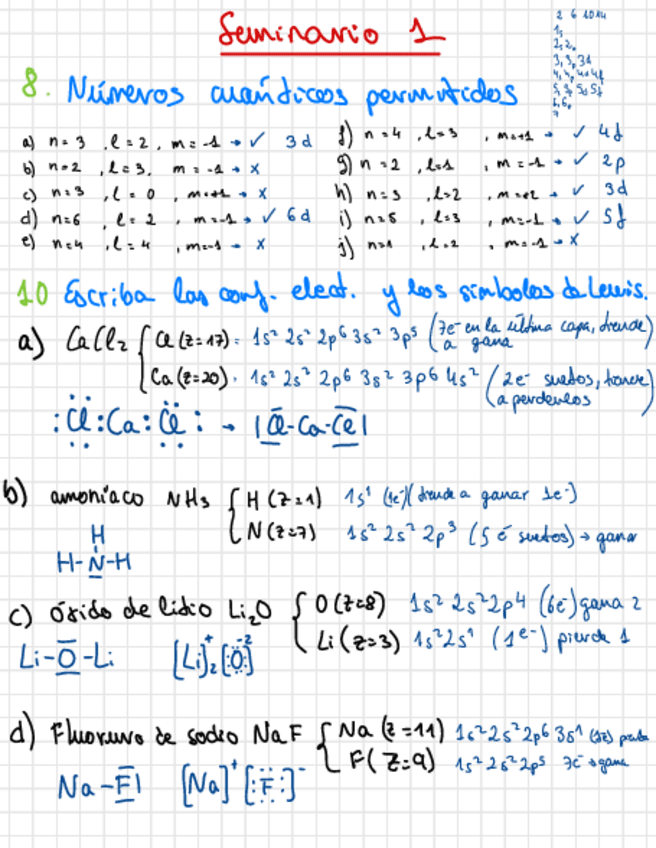 Seminario 1
2 6 10 14
1s
2s 2p
3s 3p 3d
4s 4p 4d 4f
5s 5p 5d 5f
6s 6p
7
8. Números cuánticos permitidos
a) n=3 , l=2, m=-1 → ✓ 3d
b) n=2 , l=3, m=-1 → x
c) n=3 , l=0 , m=+1 → x
d) n=6 , l=2 , m=-1 → ✓ 6d
e) n=4 , l=4 , m=-1 → x
f) n=4 , l=3 , m=+1 → ✓ 4f
g) n=2 , l=1 , m=-1 → ✓ 2p
h) n=3 , l=2 , m=+2 → ✓ 3d
i) n=5 , l=3 , m=-1 → ✓ 5f
j) n=1 , l=2 , m=-1 → x
10 Escriba las conf. elect. y los símbolos de Lewis.
a) CaCl₂ { Cl (z=17): 1s² 2s² 2p⁶ 3s² 3p⁵ (7e⁻ en la última capa, tiende a gana
Ca (z=20): 1s² 2s² 2p⁶ 3s² 3p⁶ 4s² (2e⁻ sueltos, tiende a perderlos
:Cl:Ca:Cl: → |Cl-Ca-Cl|
b) amoníaco NH₃ { H (z=1) 1s¹ (1e⁻) (tiende a ganar 1e⁻)
N (z=7) 1s² 2s² 2p³ (5 e⁻ sueltos) → ganar
H
H-N-H
c) óxido de litio Li₂O { O (z=8) 1s² 2s² 2p⁴ (6e⁻) gana 2
Li (z=3) 1s² 2s¹ (1e⁻) pierde 1
Li-O-Li [Li]⁺₂ [:O:]⁻²
d) Fluoruro de sodio NaF { Na (z=11) 1s² 2s² 2p⁶ 3s¹ (1e)
F (z=9) 1s² 2s² 2p⁵ 7e⁻ → gana
Na-F| [Na]⁺ [:F:]⁻